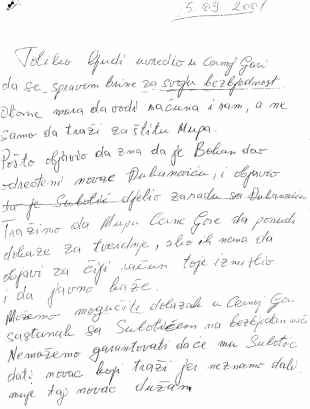 15 09 2001
Toliko ljudi uvredio u Crnoj Gori
da se spravom brine za svoju bezbjednost.
Otome mora da vodi računa i sam, a ne
samo da traži zaštitu Mupa.
Pošto objavio da zna da je Bohan dao
odreoteni novac Duhanoviću, i objavio
to je Subotić djelio zaradu sa Duhanovićem
Tražimo da Mupu Crne Gore da ponudi
dokaze za tvrdnje, ako ih nema da
objavi za čiji račun to je izmislio
i da javno kaže.
Možemo mogućiti dolazak u Crnoj Gori
sastanak sa Subotićem na bezbjedan način
Nemožemo garantovati da će mu Subotić
dati novac koji traži jer neznamo dali
mu je taj novac dužan